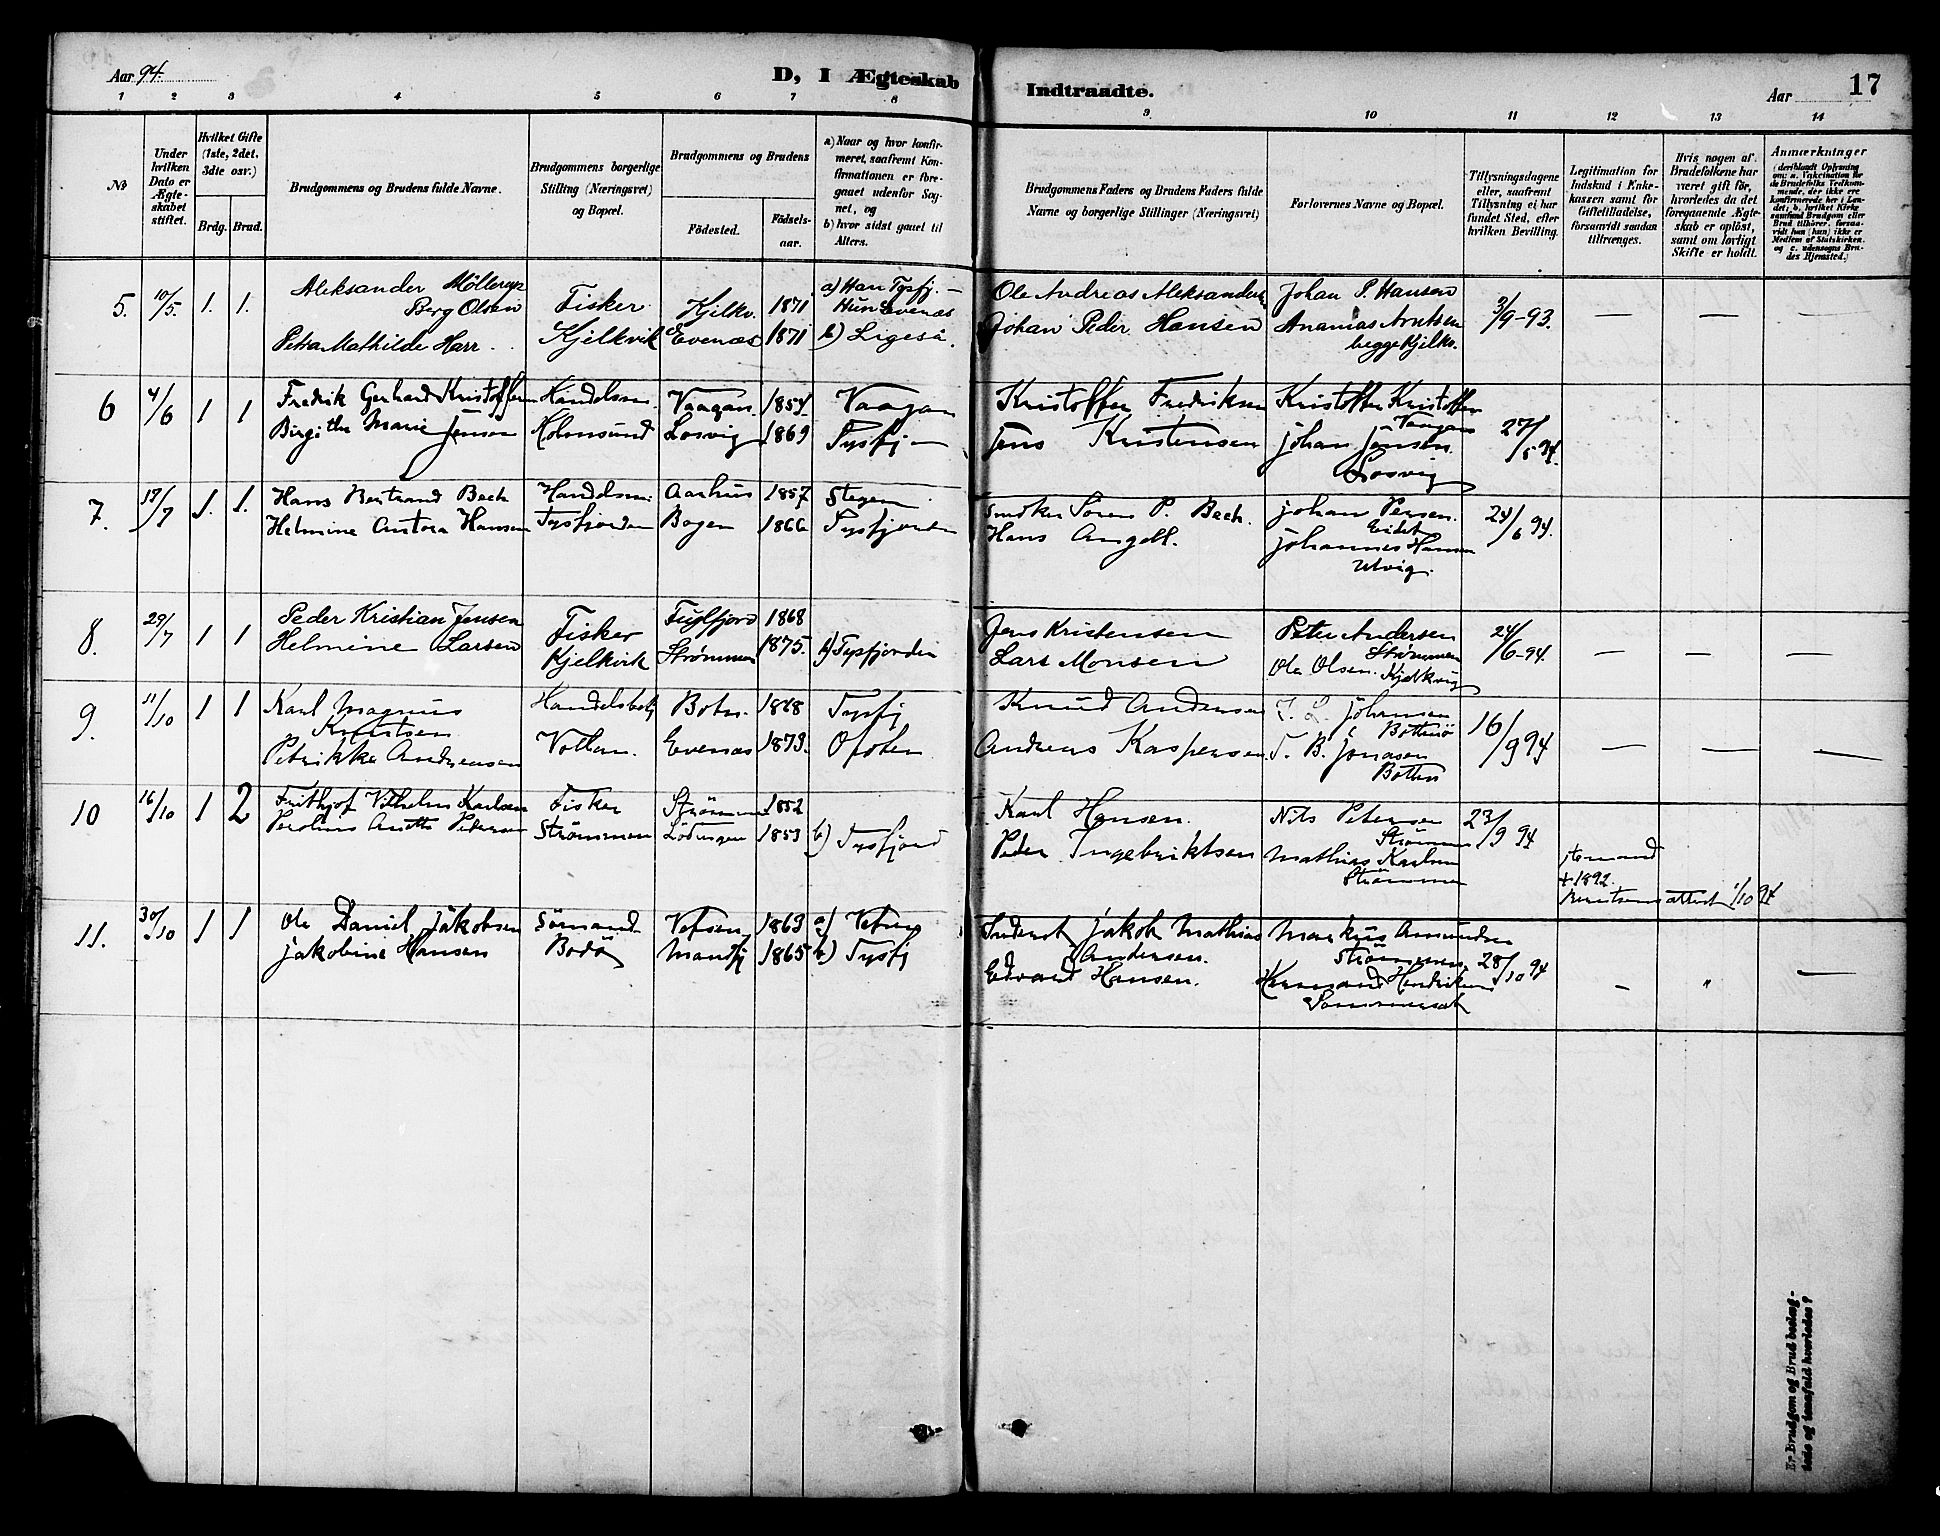 Aar 94.
D, I Ægteskab Indtraadte.
Aar
17
1 2 3 4 5 6 7 8 9 10 11 12 13 14
№
Under hvilken Dato er Ægteskabet stiftet.
Hvilket Gifte (1ste, 2det, 3die osv.)
Brdg. Brud.
Brudgommens og Brudens fulde Navne.
Brudgommens borgerlige Stilling (Næringsvei) og Bopæl.
Brudgommens og Brudens
Födested.
Födselsaar.
a) Naar og hvor konfirmeret, saafremt Konfirmationen er foregaaet udenfor Sognet, og
b) hvor sidst gaaet til Alters.
Brudgommens Faders og Brudens Faders fulde Navne og borgerlige Stillinger (Næringsvei)
Forlovernes Navne og Bopæl.
Tillysningsdagene eller, saafremt Tillysning ei har fundet Sted, efter hvilken Bevilling.
Legitimation for Indskud i Enkekassen samt for Giftetilladelse, forsaavidt saadan tiltrænges.
Hvis nogen af Brudefolkene har været gift för, hvorledes da det foregaaende Ægteskab er oplöst, samt om lovligt Skifte er holdt.
Anmærkninger
5. 10/5. 1. 1.
Aleksander Möllerup
Berg Olsen
Petra Mathilde Harr.
Fisker
Kjelkvik
Kjilkv. 1871
Evenæs 1871
a) Han Tysfj. —
Hun Evenæs
b) Ligeså.
Ole Andreas Aleksanders
Johan Peder Hansen
Johan P. Hansen
Ananias Arntsen
begge Kjelkv.
3/9-93.
— — —
6 4/6 1 1
Fredrik Gerhard Kristoffersen
Birgitha Marie Jensen
Handelsm.
Holmsund
Vaagan 1854
Losvig 1869
Vaagan
Tysfj —
Kristoffer Fredriksen
Jens Kristensen
Kristoffer Kristoffer
Vaagan
Johan Jensen
Losvig
27/5 94.
7. 19/7 1. 1.
Hans Bertrand Bech
Helmine Antora Hansen
Handelsm.
Tysfjorden
Aarhus 1857
Bogen 1866
Stegen
Tysfjorden
Sören P. Bech.
Hans Angell.
Johan Persen.
Eidet
Johannes Hansen
Ulvig.
24/6 94.
8. 29/7 1 1
Peder Kristian Jensen
Helmine Larsen
Fisker
Kjelkvik
Fuglfjord 1868
Strømmen 1875.
b) Tysfjorden
Jens Kristensen
Lars Monsen
Peter Andersen
Strömmen
Ole Olsen. Kjelkvig
24/6-94.
— — —
9. 11/10 1 1
Karl Magnus
Knutsen
Petrikke Andreasen
Handelsbetj
Botn. 1868
Evenæs 1873.
Tysfj
Ofoten
Knud Andersen
Andreas Kaspersen
J. L. Johansen
T. B. Jonasen
Botten
16/9 94
— — —
10 16/10 1 2
Frithjof Vilhelm Karlsen
Anetta Petersen
Fisker
Strömmen
Strömmen 1852
Lödingen 1853
b) Tysfjord
Karl Hansen.
Peder Ingebriktsen
Nils Petersen
Strömmen
Mathias Karlsen
Strömmen
23/9 94
+ 1892.
attest 1/10 94
11. 30/10 1 1
Ole Daniel Jakobsen
Jakobine Hansen
Sömand
Bodö
Vefsen 1863
Manfj 1865
a) Vefsen
b) Tysfj
Jakob Mathias
Andersen.
Edvard Hansen.
Markus Amundsen
Strömmen
Hendriksen
Sommerset
28/10 94
— " —
Er Brudgom og Brud beslægtede og isaafald hvorledes?